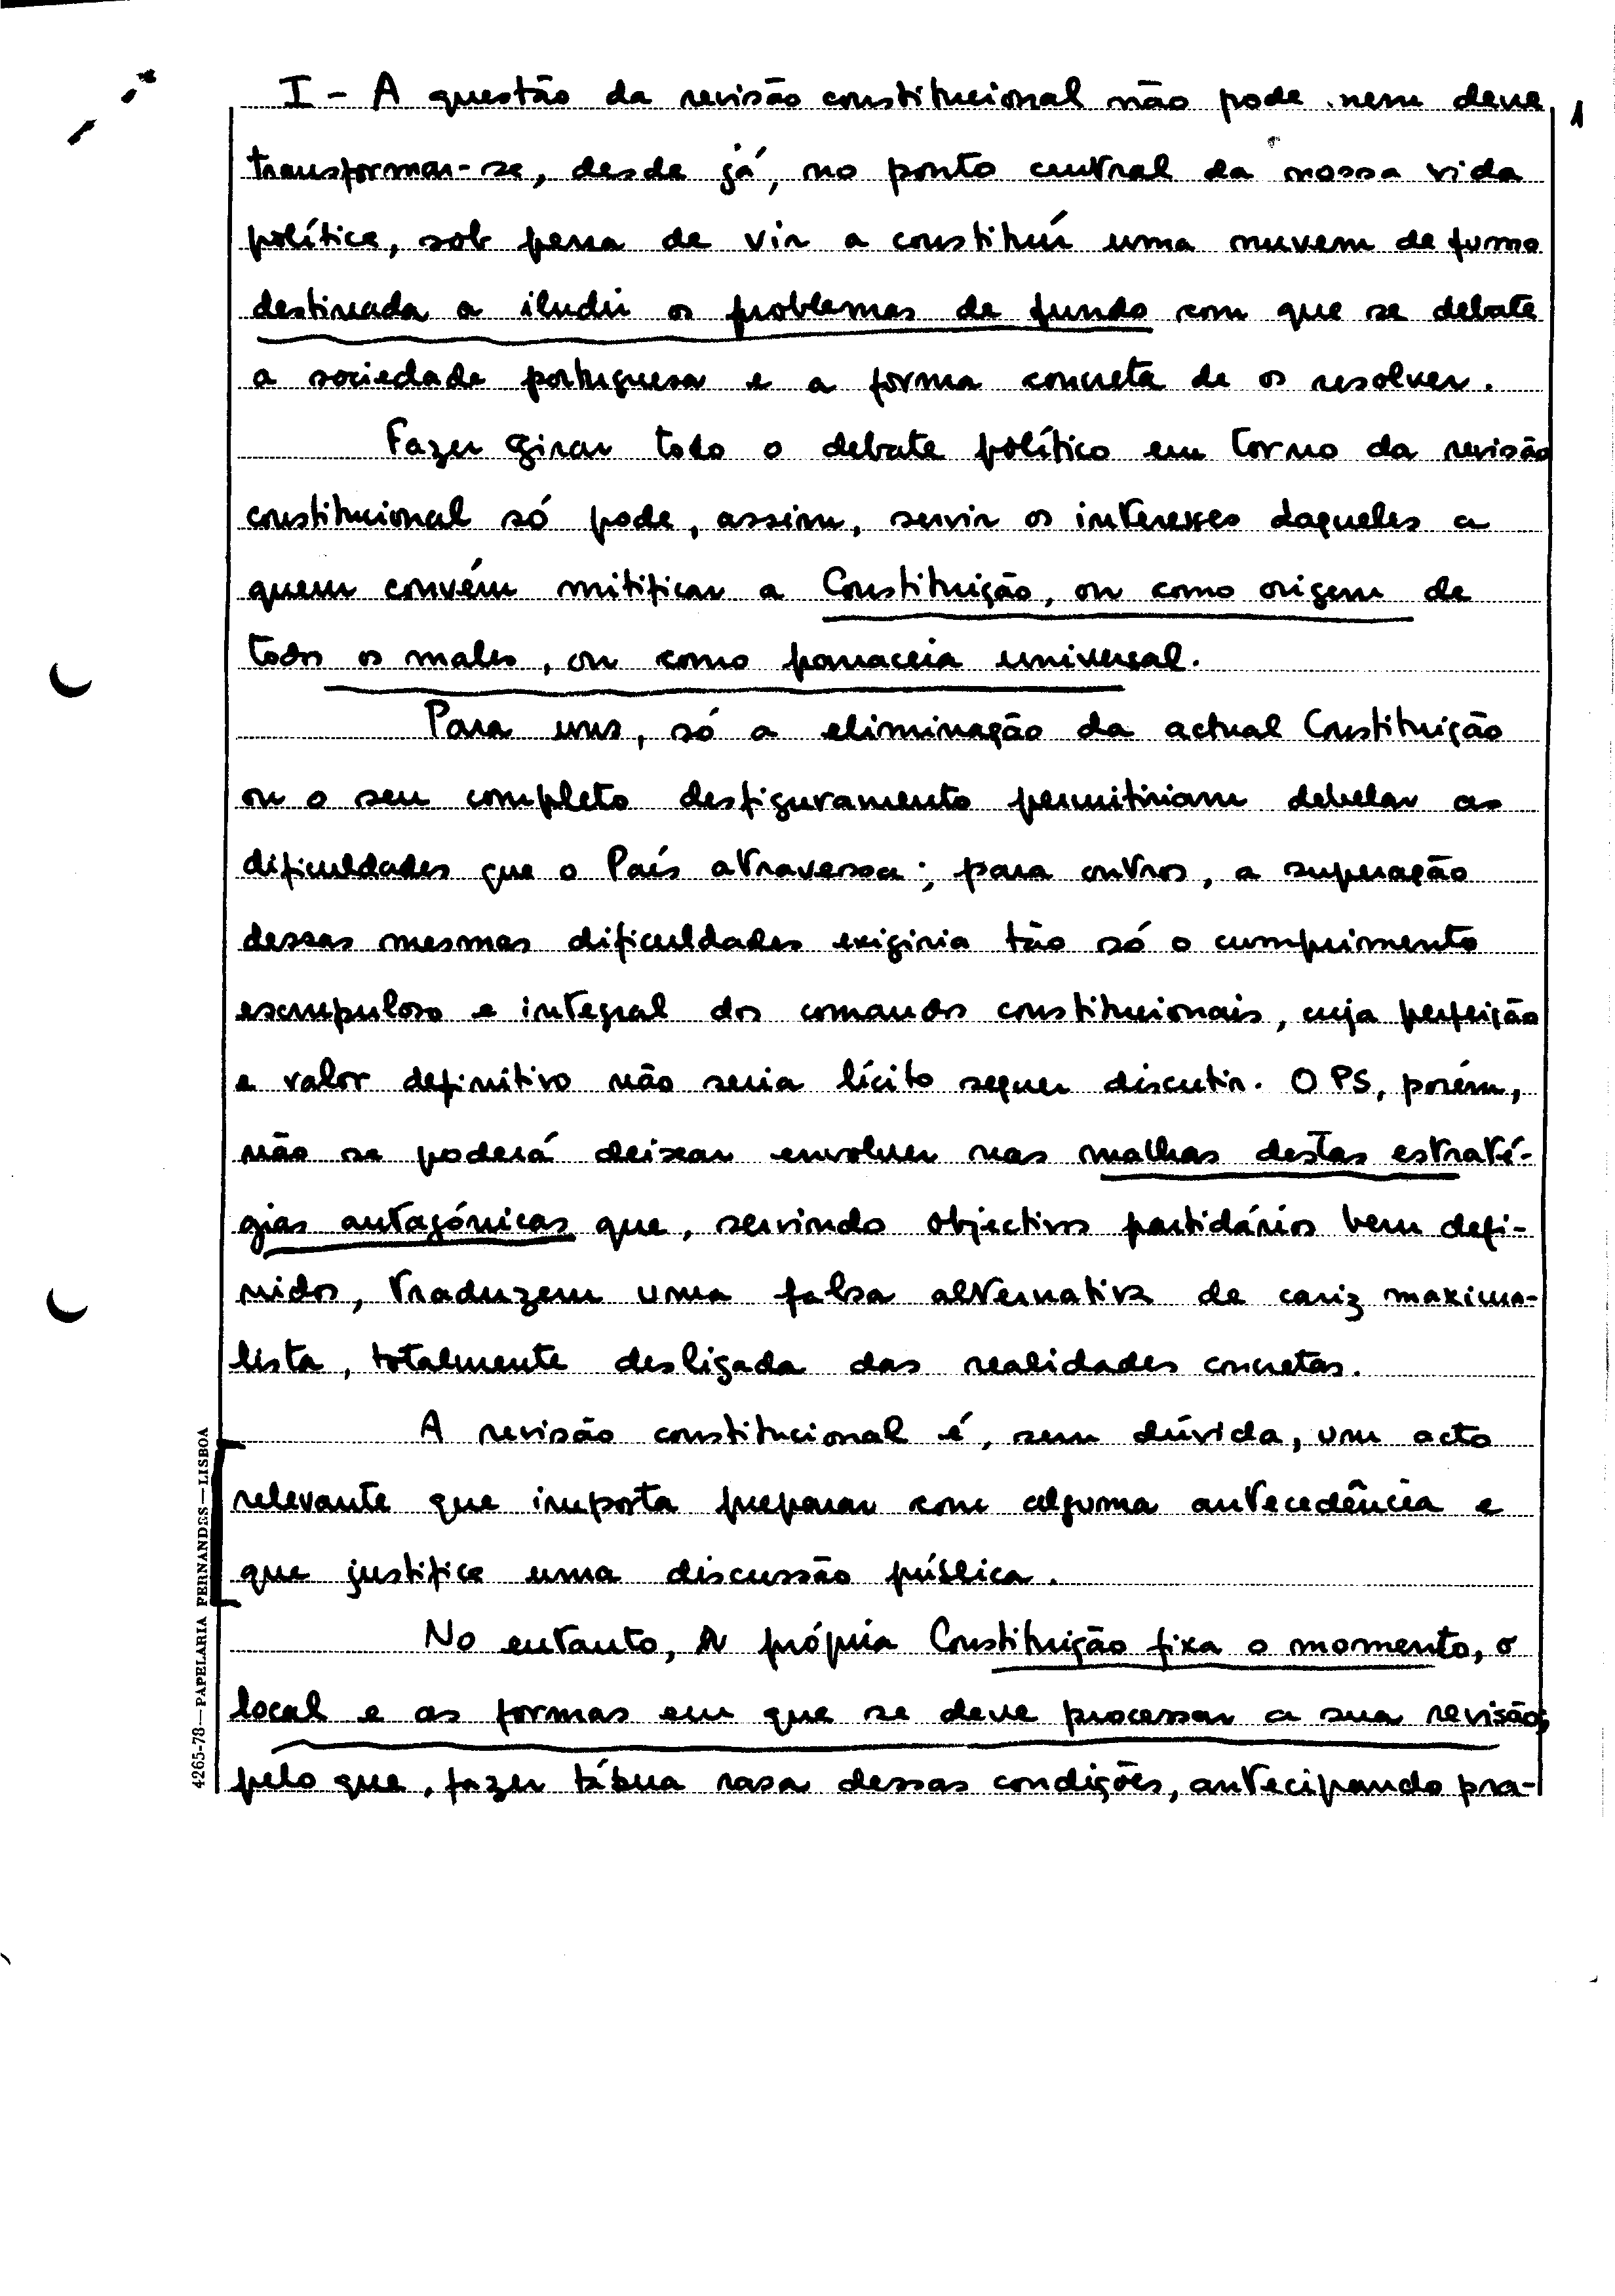 I - A questão da revisão constitucional não pode nem deve
1
transformar-se, desde já, no ponto central da nossa vida
política, sob pena de vir a constituir uma nuvem de fumo
destinada a iludir os problemas de fundo com que se debate
a sociedade portuguesa e a forma concreta de os resolver.
Fazer girar todo o debate político em torno da revisão
constitucional só pode, assim, servir os interesses daqueles a
quem convém mitificar a Constituição, ou como origem de
todos os males, ou como panaceia universal.
Para uns, só a eliminação da actual Constituição
ou o seu completo desfiguramento permitiriam debelar as
dificuldades que o País atravessa; para outros, a superação
dessas mesmas dificuldades exigiria tão só o cumprimento
escrupuloso e integral dos comandos constitucionais, cuja perfeição
e valor definitivo não seria lícito sequer discutir. O PS, porém,
não se poderá deixar envolver nas malhas destas estraté-
gias antagónicas que, servindo objectivos partidários bem defi-
nidos, traduzem uma falsa alternativa de cariz maxima-
lista, totalmente desligada das realidades concretas.
A revisão constitucional é, sem dúvida, um acto
relevante que importa preparar com alguma antecedência e
que justifica uma discussão pública.
No entanto, a própria Constituição fixa o momento, o
local e as formas em que se deve processar a sua revisão,
pelo que, fazer tábua rasa dessas condições, antecipando pra-
4265-78—PAPELARIA FERNANDES—LISBOA